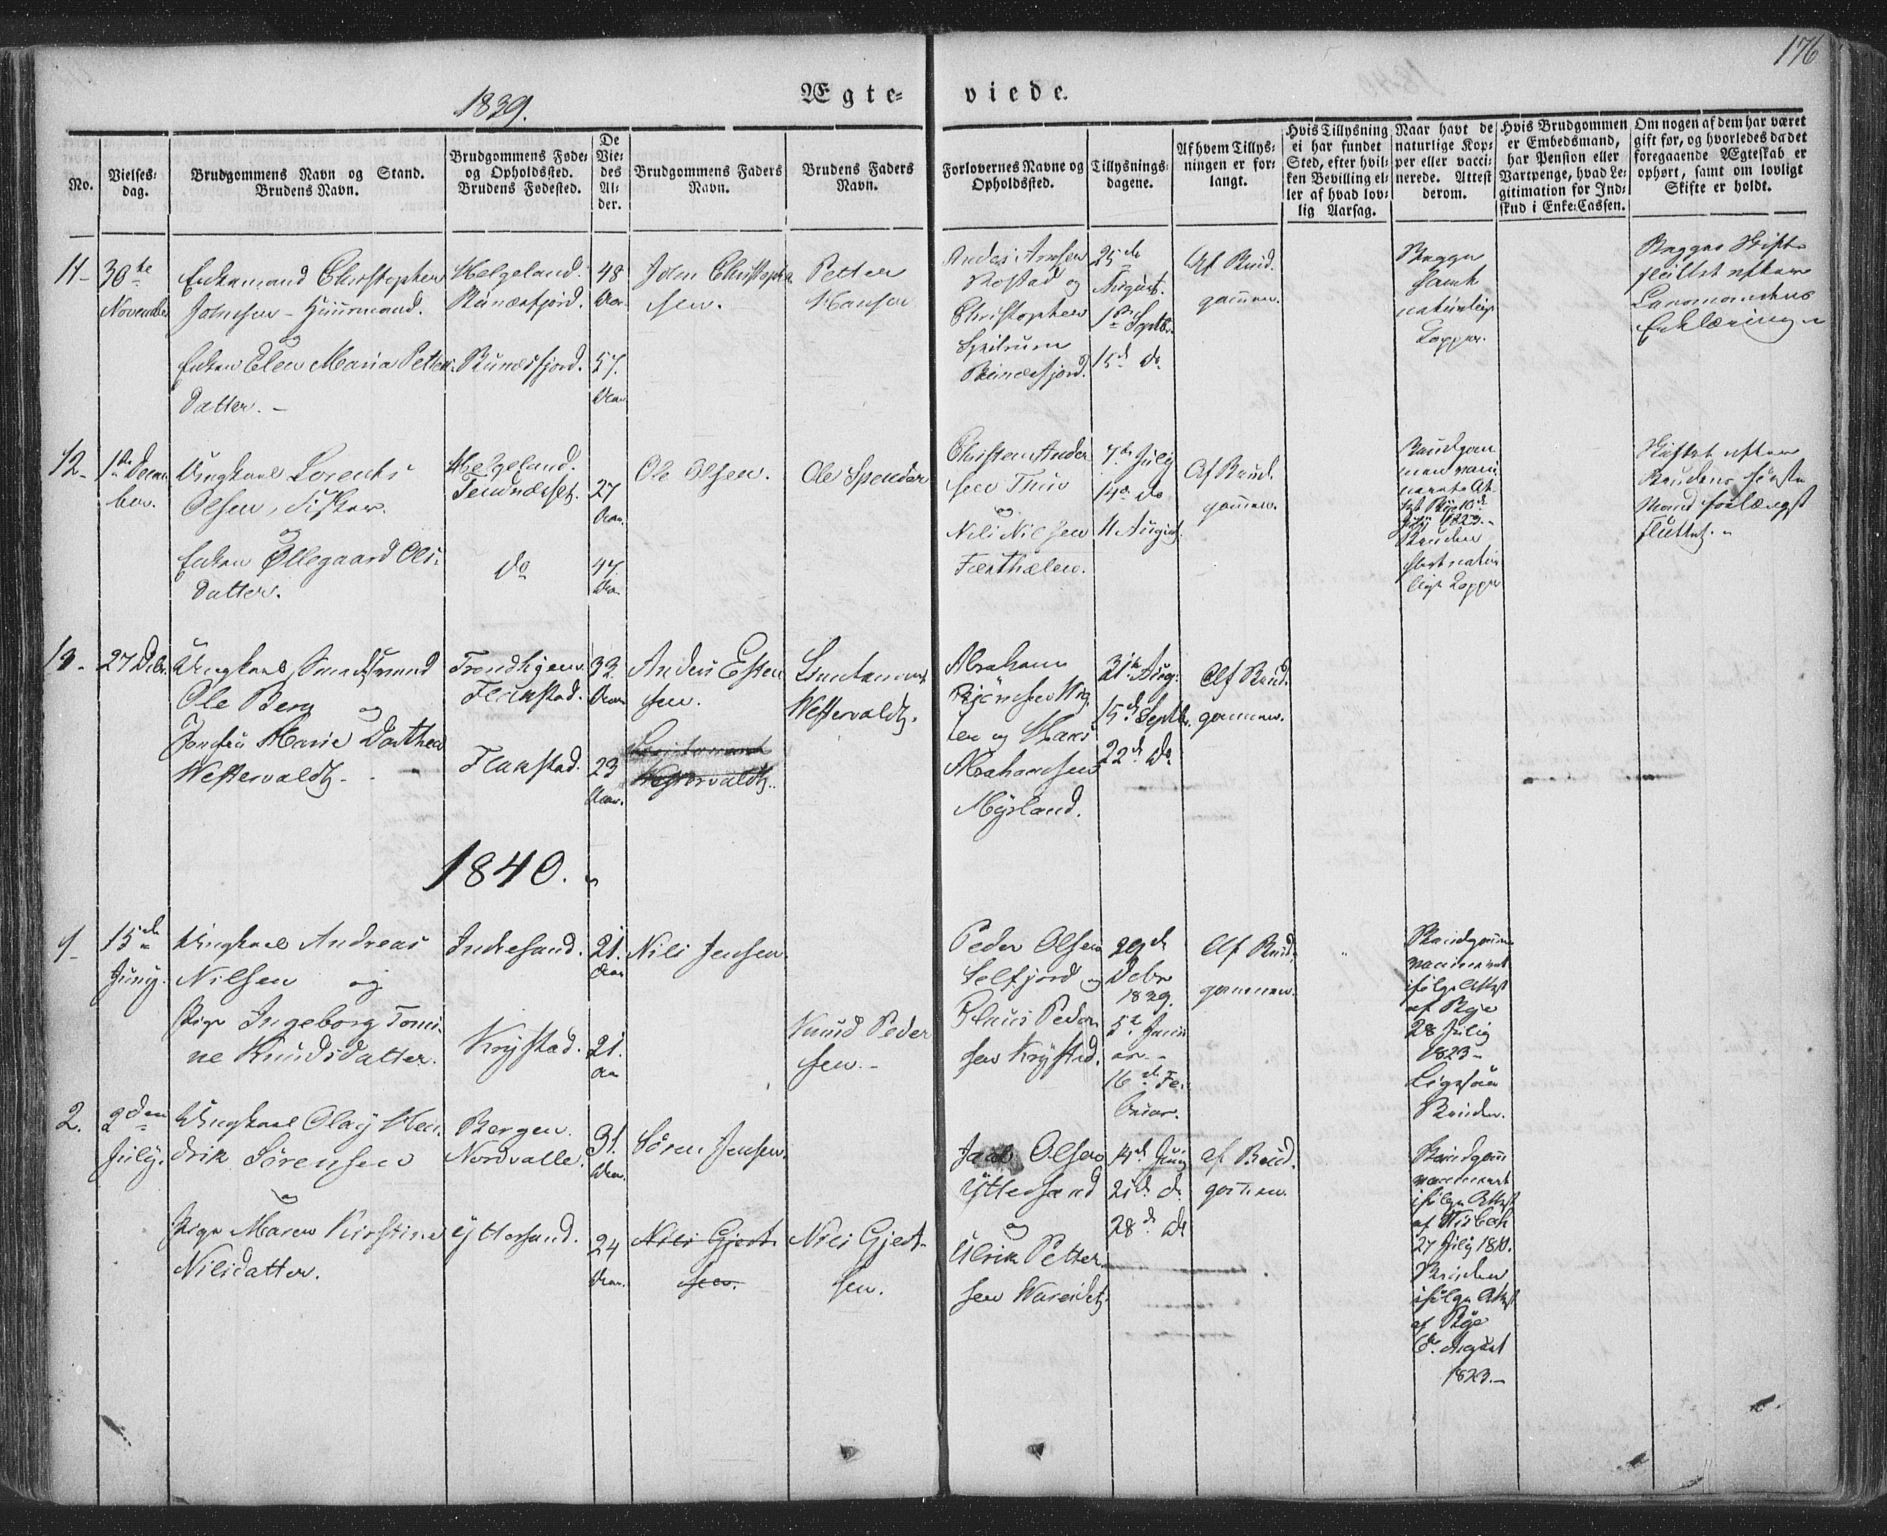 176
1839.
Ægte-
viede.
No.
Vielses-
dag.
Brudgommens Navn og Stand.
Brudens Navn.
Brudgommens Føde-
og Opholdssted.
Brudens Fødested.
De
Vie-
des
Al-
der.
Brudgommens Faders
Navn.
Brudens Faders
Navn.
Forlovernes Navne og
Opholdssted.
Tillysnings-
dagene.
Af hvem Tillys-
ningen er for-
langt.
Hvis Tillysning
ei har fundet
Sted, efter hvil-
ken Bevilling el-
ler af hvad lov-
lig Aarsag.
Naar havt de
naturlige Kop-
per eller vacci-
nerede. Attest
derom.
Hvis Brudgommen
er Embedsmand,
har Pension eller
Vartpenge, hvad Le-
gitimation for Ind-
skud i Enke-Cassen.
Om nogen af dem har været
gift før, og hvorledes da det
foregaaende Ægteskab er
ophørt, samt om lovligt
Skifte er holdt.
11-
30te
November
Enkemand Christopher
Johnsen - Huusmand.
og
Enken Elen Maria Petters
Datter. -
Helgeland.
Sundesfjord.
48
Aar
57.
Aar
John Christopher
sen.
Petter
Hansen
Anders Arnsen
og
Christopher
25de
August.
1ste Septbr.
15de do
Af Brud-
gommen.
Begge
havt
naturlige
Copper.
Begges Skifte
sluttet efter
Lensmandens
Erklæring
12-
1ste Decem
ber.
Ungkarl Lorents
Olsen, Fisker.
og
Enken Øllegaard Ols-
Datter.
Helgeland.
do
27
Aar
47.
Aar
Ole Olsen.
Ole Spender
Christen Ander
sen Thuv
og
Nils Nilsen
7de July
14de do
11 August.
Af Brud-
gommen.
Brudgom
men vacci
neret
1823.
Bruden
havt natur
lige Copper
Skiftet efter
Brudens første
Mand forlængst
sluttet. -
13-
27 Debr
Ungkarl
Ole Berg og
Jomfru Marie Dorthea
Westervaldt -
Trondhjem
Flakstad.
Flakstad.
32.
Aar
23
Aar.
Anders Esten
sen.
Westervaldt.
Westervaldt.
Abraham
og Hans
Abrahamsen
Myrland.
31te Aug.
15de Septbr.
22de do
Af Brud-
gommen.
1840.
1
15de
Juny.
Ungkarl Andreas
Nilsen og
Pige Ingeborg Tomi-
ne Knudsdatter.
Indresand.
Krystad.
21.
Aar
21.
Aar
Nils Jensen
Knud Peder
sen. -
Peder Olsen
Selfjord og
Peder
sen Krystad.
29de
Debr
1839.
5te Janu
ar. -
16de Fe-
bruar.
Af Brud-
gommen.
Brudgommen
vaccineret
ifølge Attest
af Rye
28 July
1823 -
Ligesaa
Bruden.
2.
2den
July.
Ungkarl Olay Hen-
drik Sørensen
og
Pige Maren Kirstine
Nilsdatter.
Bergen.
Nordvalle.
Yttersand.
31.
Aar.
24
Aar.
Søren Jensen.
Nils Gjert-
sen.
Nils Gjert-
sen.
Olsen
Yttersand
og
Ulrik Petter
sen Wareidet
14de Juny
21de do
28de do
af Brud-
gommen.
Brudgom
vaccineret
ifølge Attest
af
27 July 1810.
Bruden
ifølge Attest
af Rye
6te August
1823. -